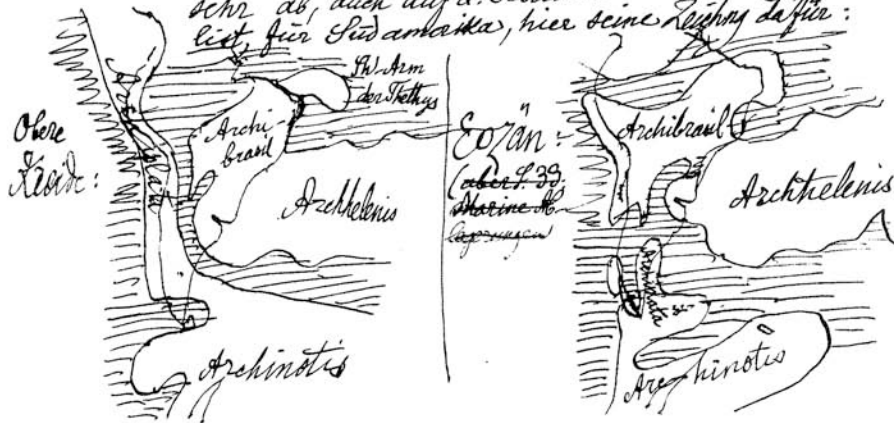 sehr ab, auch auf d.
list, für Südamerika, hier seine Zeichng dafür:
Obere
Kreide:
SW-Arm
der Thethys
Archi-
brasil
Archhelenis
Archinotis
Eozän:
(aber S. 33:
Marine Ab-
lagerungen
Archibrasil
Archhelenis
Archiplata
Archinotis